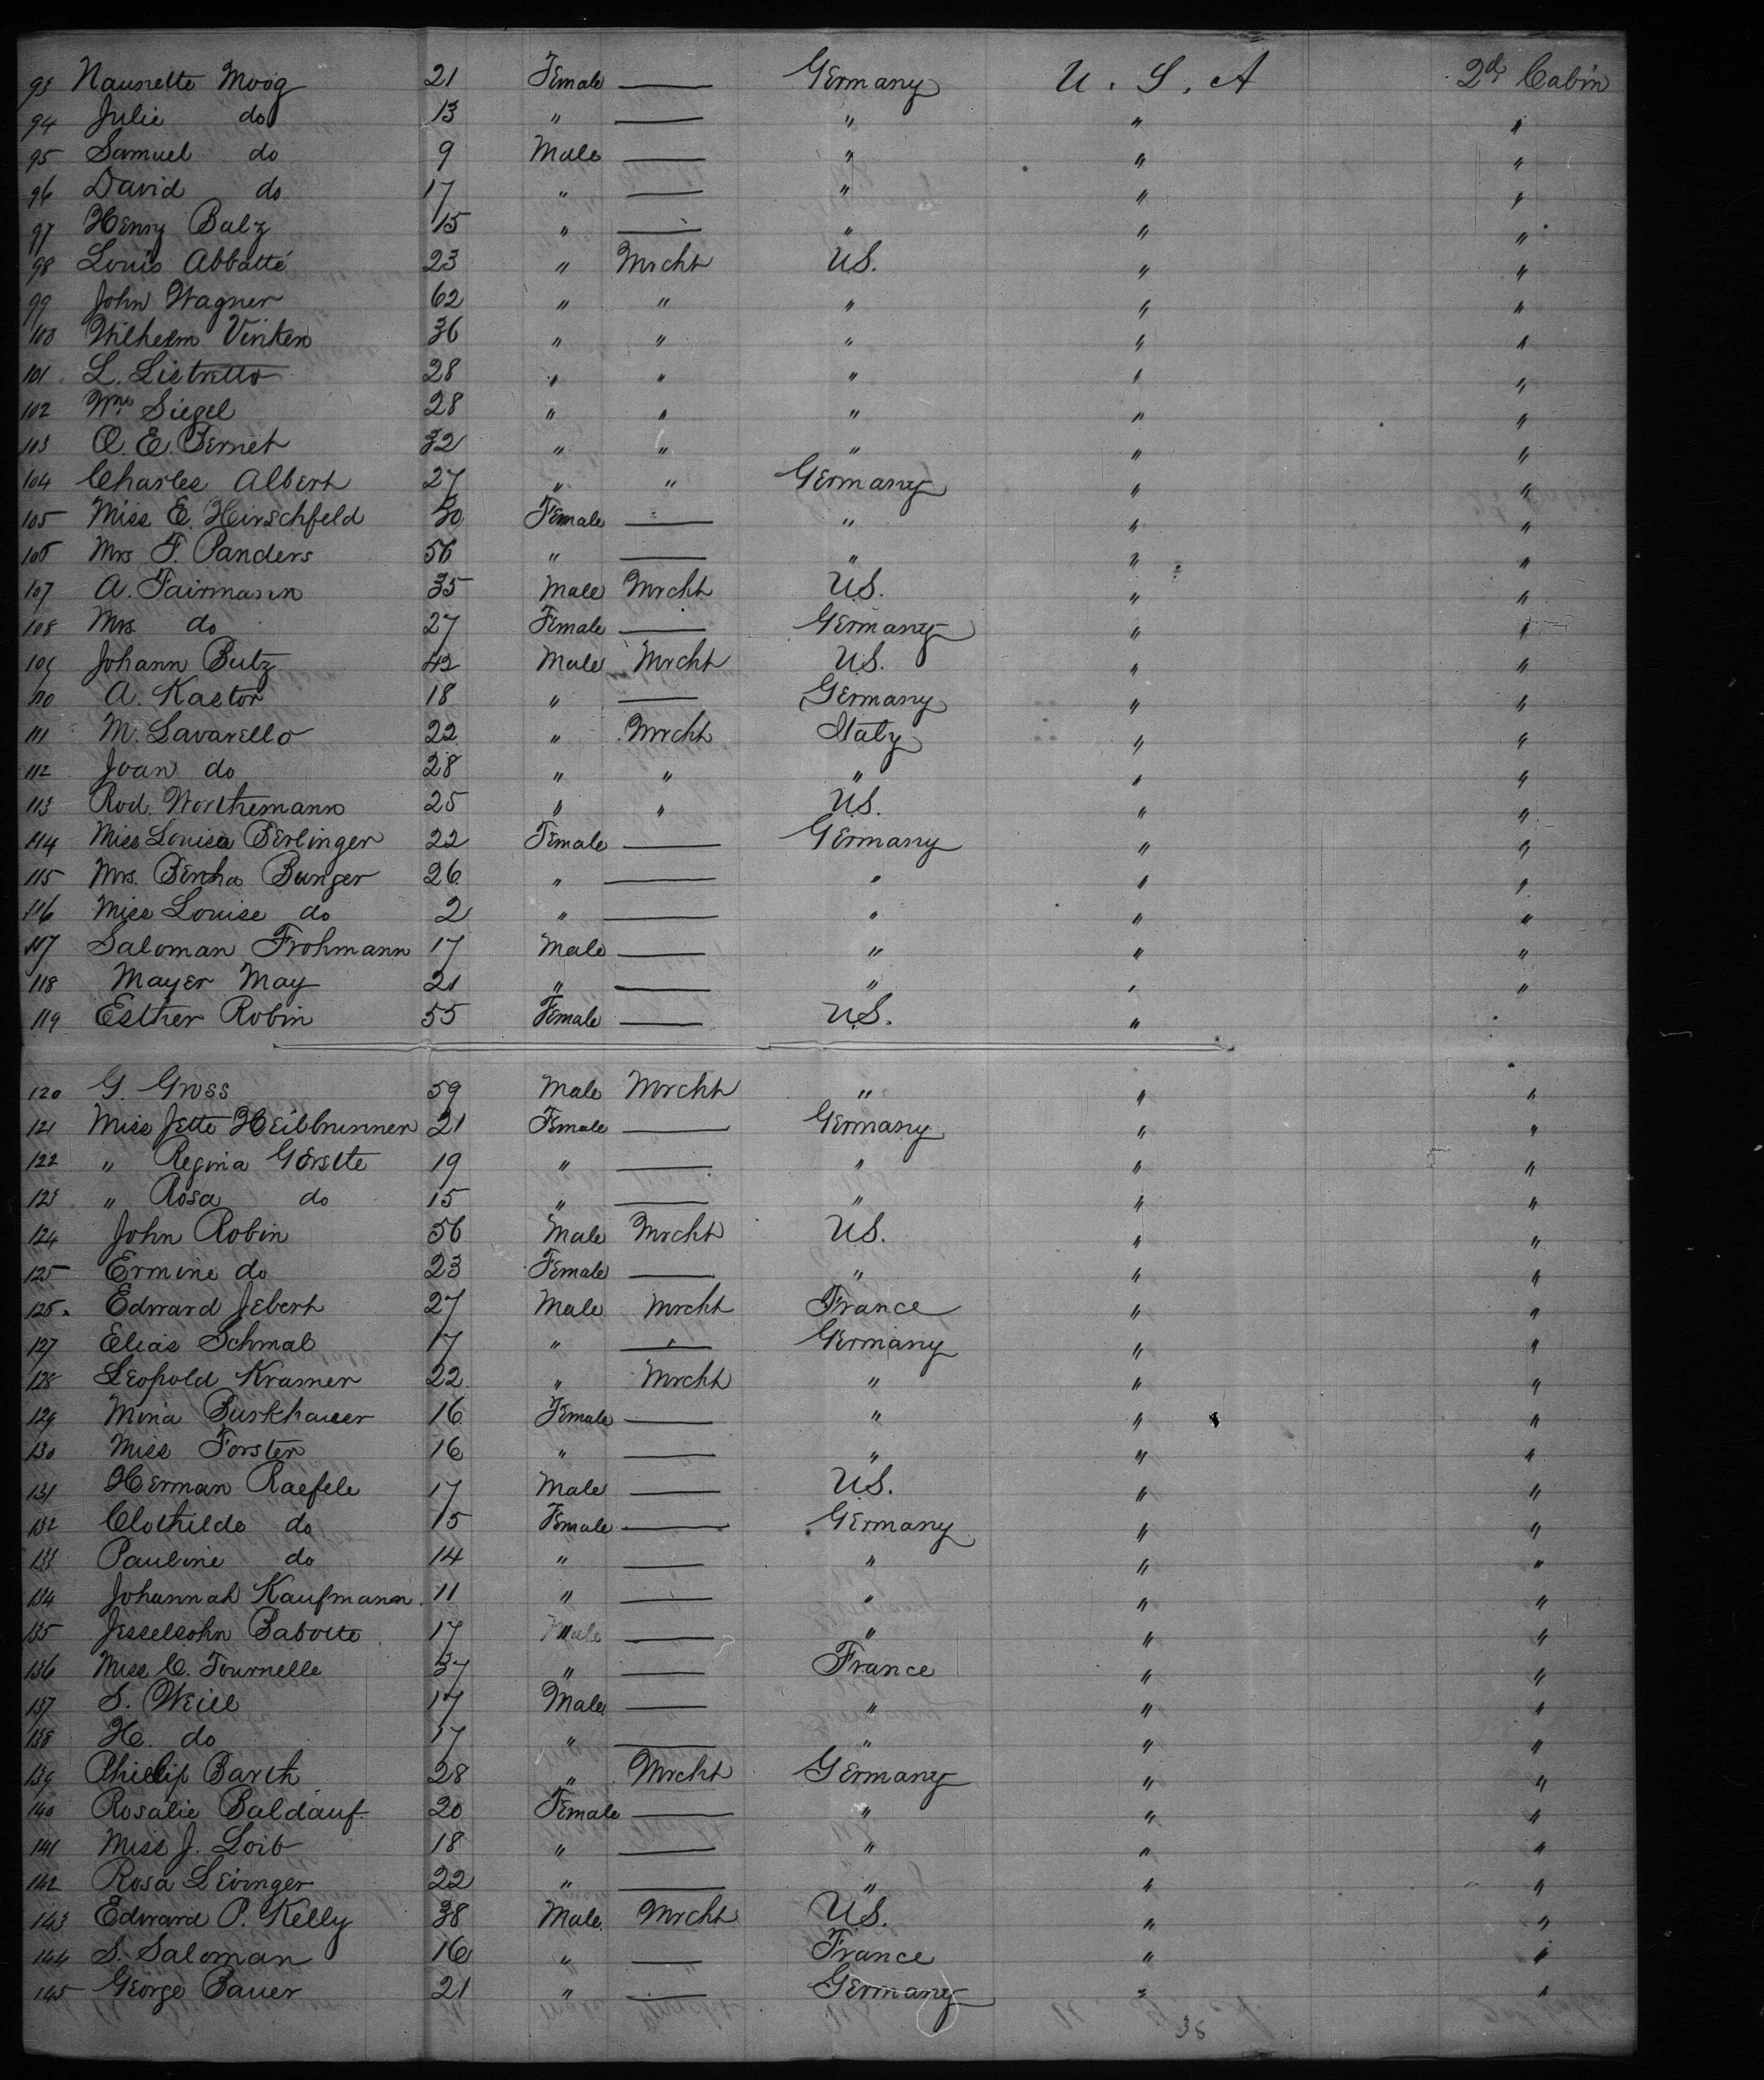 93 Naunette Moog 21 Female — Germany U. S. A 2d Cabin
94 Julie do 13 " — " " "
95 Samuel do 9 Male — " " "
96 David do 17 " — " " "
97 Henry Balz 15 " — " " "
98 Louis Abbatté 23 " Mrcht US. " "
99 John Wagner 62 " " " " "
100 Wilhelm Vinken 36 " " " " "
101 L. Listretto 28 " " " " "
102 Wm Siegel 28 " " " " "
103 O. E. Bernet 32 " " " " "
104 Charles Albert 27 " " Germany " "
105 Miss E. Hirschfeld 30 Female — " " "
106 Mrs F. Panders 56 " — " " "
107 A. Fairmann 35 Male Mrcht US. " "
108 Mrs. do 27 Female — Germany " "
109 Johann Butz 42 Male Mrcht US. " "
110 A. Kastor 18 " — Germany " "
111 M. Lavarello 22 " Mrcht Italy " "
112 Joan do 28 " " " " "
113 Rod. Worthemann 25 " " US. " "
114 Miss Louisa Berlinger 22 Female — Germany " "
115 Mrs. Bertha Bunger 26 " — " " "
116 Miss Louise do 2 " — " " "
117 Saloman Frohmann 17 Male — " " "
118 Mayer May 21 " — " " "
119 Esther Robin 55 Female — US. "
120 G. Gross 59 Male Mrcht " " "
121 Miss Jette Heilbrunner 21 Female — Germany " "
122 " Regina Gerstte 19 " — " " "
123 " Rosa do 15 " — " " "
124 John Robin 56 Male Mrcht US. " "
125 Ermine do 23 Female — " " "
126 Edward Jebert 27 Male Mrcht France " "
127 Elias Schmal 17 " — Germany " "
128 Leopold Kramer 22 " Mrcht " " "
129 Mina Burkhauer 16 Female — " " "
130 Miss Forster 16 " — " " "
131 Herman Raefele 17 Male — US. " "
132 Clothilde do 15 Female — Germany " "
133 Pauline do 14 " — " " "
134 Johannah Kaufmann 11 " — " " "
135 Jesselsohn Babette 17 — " " "
136 Miss C. Tournelle 37 " — France " "
137 S. Weill 17 Male — " " "
138 H. do 17 " — " " "
139 Phillip Barth 28 " Mrcht Germany " "
140 Rosalie Baldauf 20 Female — " " "
141 Miss J. Loib 18 " — " " "
142 Rosa Levinger 22 " — " " "
143 Edward P. Kelly 38 Male Mrcht US. " "
144 S. Saloman 16 " — France " "
145 George Bauer 21 " — Germany " "